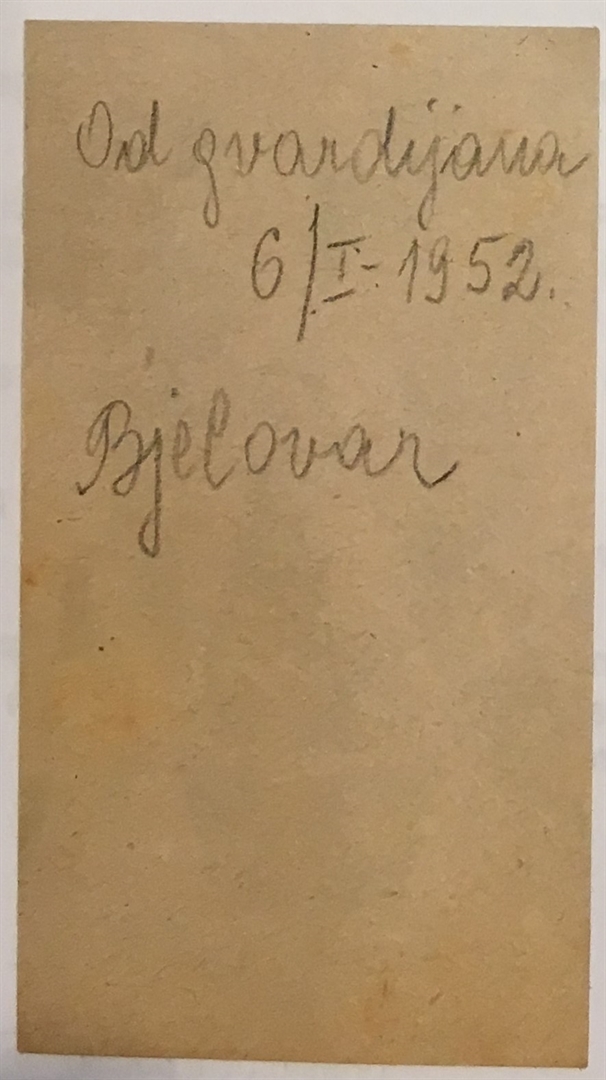 Od gvardijana
6/I-1952.
Bjelovar